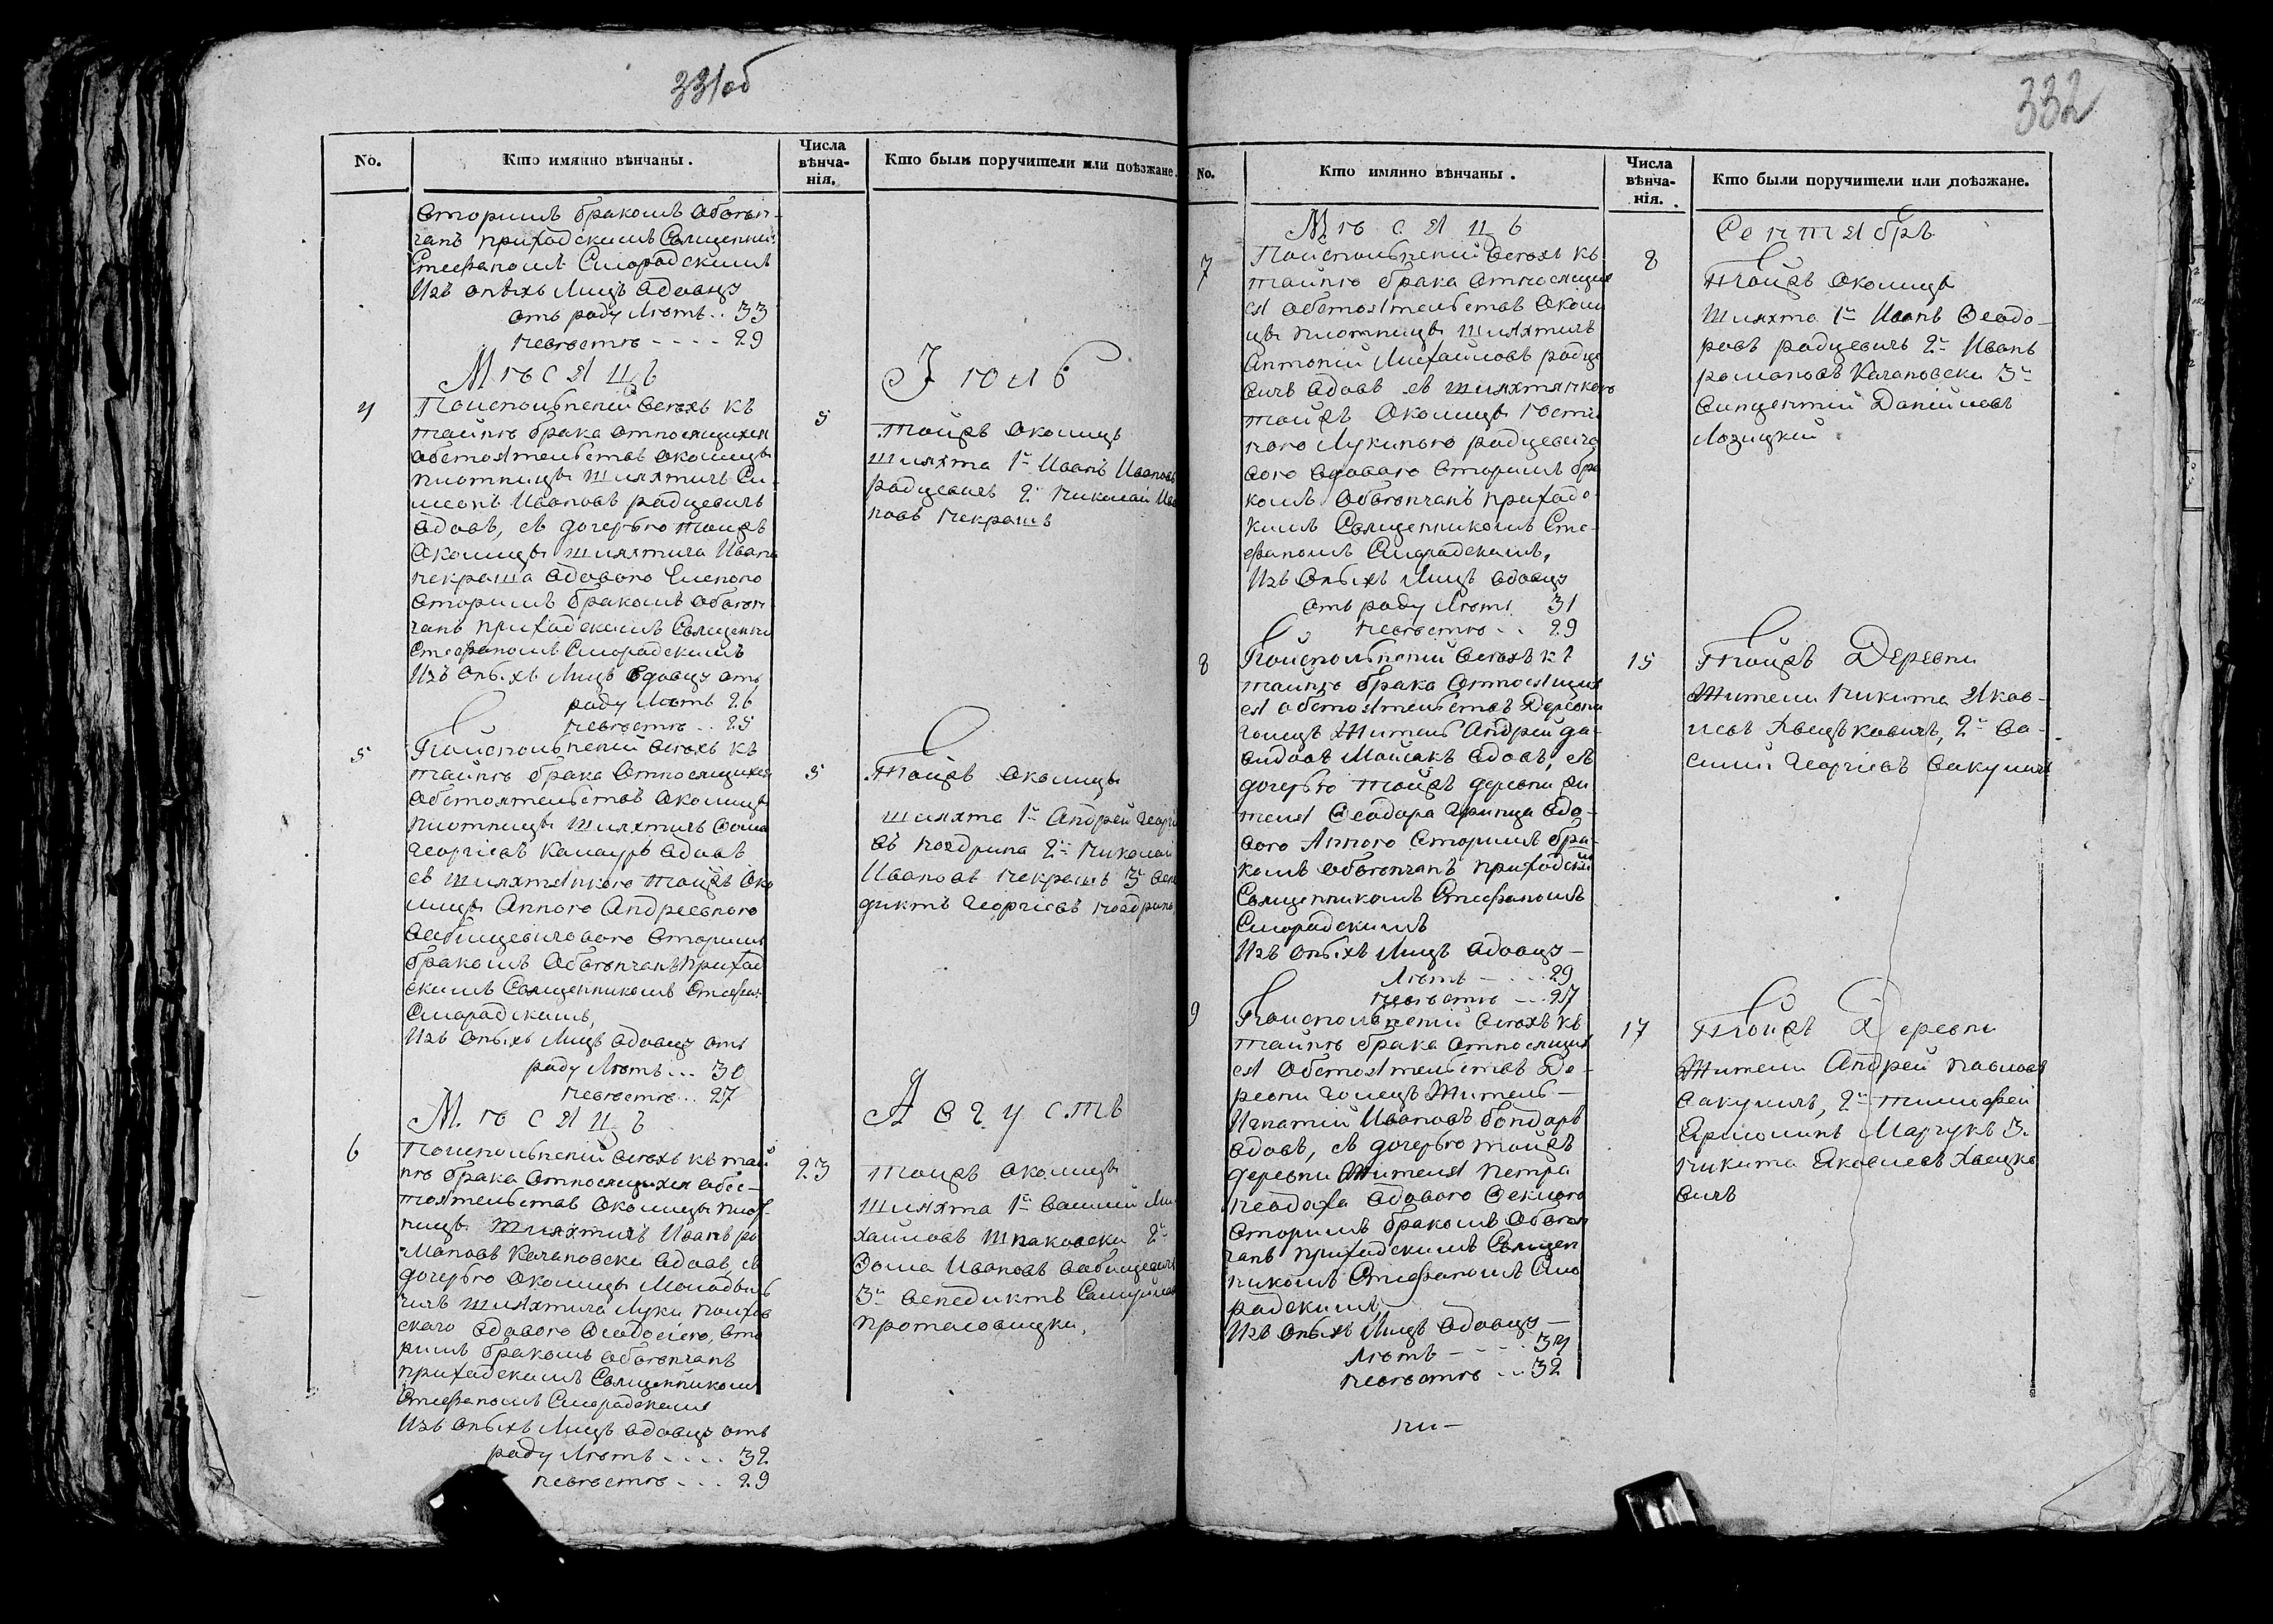 331об
No.
Кто имянно вѣнчаны.
Числа вѣнча-нія.
Кто были поручители или поѣзжане.
вторимъ бракомъ обвѣн-
чанъ приходскимъ Священни:
Стефаномъ Смородскимъ
Изъ оныхъ Лицъ вдовцу
отъ роду Лѣтъ .. 33
невѣстѣ - - - - 29
Мѣсяцъ
Іюль
4
По исполненій всѣхъ къ
тайнѣ брака относящихся
обстоятельствъ околицы
плотницы шляхтичъ Си-
меонъ Ивановъ радцевичъ
вдовъ, съ дочерью тойжъ
околицы шляхтича Ивана
некраша вдовою Еленою
вторимъ бракомъ обвѣн
чанъ приходскимъ Священни
Стефаномъ Смородскимъ
Изъ оныхъ Лицъ вдовцу отъ
роду Лѣтъ 26
невѣстѣ .. 25
5
тойжъ околицы
шляхта 1й Иванъ Ивановъ
радцевичъ 2й Николай Ива
новъ некрашъ
5
По исполненій всѣхъ къ
тайнѣ брака относящихся
обстоятельствъ околицы
плотницы шляхтичъ Фома
Георгіевъ Калауръ вдовъ
съ шляхтянкою тойжъ око
лицы Анною Андреевною
Бабицевичовою вторимъ
бракомъ обвѣнчанъ приход
скимъ Священникомъ Стефан:
Смородскимъ,
Изъ оныхъ Лицъ вдовцу отъ
роду Лѣтъ ... 30
невѣстѣ .. 27
5
Тойжъ околицы
шляхта 1й Андрей Георгі
въ ноздрина 2й Николай
Ивановъ некрашъ 3й вене
диктъ Георгіевъ ноздринъ
Мѣсяцъ
Августъ
6
По исполненій всѣхъ къ тай
нѣ брака относящихся обс-
тоятельствъ околицы плот-
ницы шляхтичъ Иванъ ро
мановъ Качановски вдовъ, съ
дочерью околицы Молодель
чичъ шляхтича Луки Полхов
скаго вдовою Феодосіею, вто
римъ бракомъ обвѣнчанъ
приходскимъ Священникомъ
Стефаномъ Смородскимъ
Изъ оныхъ Лицъ вдовцу отъ
роду Лѣтъ .... 32
невѣстѣ ... 29
23
тойжъ околицы
шляхта 1й Василій Ми
хайловъ шпаковски 2й
Фома Ивановъ Бабицевичъ
3й Венедиктъ Самуйлов
протасовицки,
332
No.
Кто имянно вѣнчаны.
Числа вѣнча-нія.
Кто были поручители или поѣзжане.
Мѣсяцъ
Сентябрь
7
По исполненій всѣхъ къ
тайнѣ брака относящих
ся обстоятельствъ околи
цы плотницы шляхтичъ
Антоній Михайловъ радце
вичъ вдовъ съ шляхтянкою
тойжъ околицы Юсти
ною Лукиною радцевичо
вою вдовою вторимъ бра
комъ обвѣнчанъ приходс-
кимъ Священникомъ Сте-
фаномъ Смородскимъ,
Изъ оныхъ Лицъ вдовцу
отъ роду Лѣтъ 31
невѣстѣ .. 29
8
тойжъ околицы
шляхта 1й Иванъ Феодо-
ровъ радцевичъ 2й Иванъ
романовъ Качановски 3й
Викентій Данійловъ
Лозицкій
8
По исполненій всѣхъ къ
тайнѣ брака относящих
ся обстоятельствъ Деревни
голецъ Житель Андрей да-
видовъ Мойсакъ вдовъ, съ
дочерью тойжъ деревни жи
теля Феодора Гринца вдо-
вою Анною вторимъ бра-
комъ обвѣнчанъ приходскимъ
Священникомъ Стефаномъ
Смородскимъ
Изъ оныхъ Лицъ вдовцу -
Лѣтъ - - .. 29
невѣстѣ - .. 27
15
Тойжъ Деревни
Жители Никита Яков-
левъ Хвецьковичъ, 2й Ва-
силий Георгіевъ Вакуличъ
9
По исполненій всѣхъ къ
тайнѣ брака относящих
ся обстоятельствъ Де-
ревни голецъ Житель -
Игнатій Ивановъ бондарь
вдовъ, съ дочерью тойжъ
деревни Жителя Петра
неодоха вдовою Феклою
вторимъ бракомъ обвѣн
чанъ приходскимъ Священ
никомъ Стефаномъ Смо
родскимъ,
Изъ оныхъ Лицъ вдовцу -
Лѣтъ - - - . 34
невѣстѣ ... 32
17
Тойжъ Деревни
Жители Андрей павловъ
Вакуличъ, 2й тимофей
Ярмолинъ Марчукъ 3.
никита Яковлевъ Хвецко
вичъ
ли-